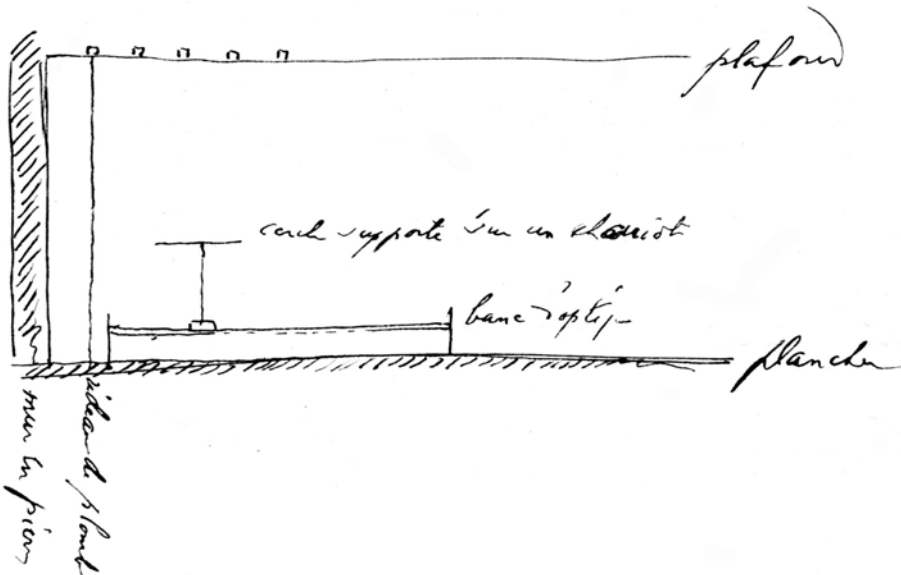 plafond
cercle supporté sur un chariot
banc d'optiq
plancher
rideau de plomb
mur en pierre